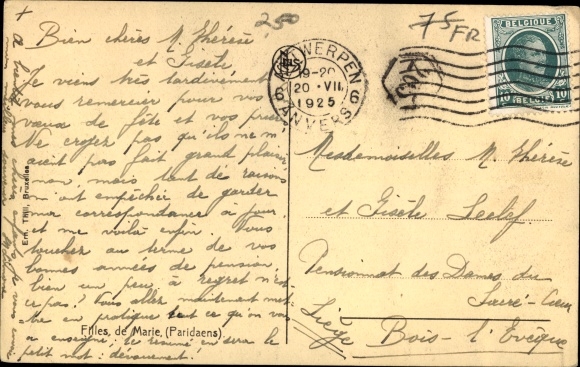 250
75 FR
BELGIQUE
BELGIE
10 10
ANTWERPEN 6
19-20
20 · VII
1925
6 ANVERS
Bien chères M. Thérèse
et Gisèle
Je viens très tardivement
vous remercier pour vos
vœux de fête et vos prières
Ne croyez pas qu'ils ne m'
aient pas fait grand plaisir
non, mais tant de raisons
m'ont empêcher de garder
ma correspondance à jour
et me voilà enfin. Vous
touchez au terme de vos
bonnes années de pension
bien un peu à regret n'est
ce pas? Vous allez maintenant met-
tre en pratique tout ce qu'on vous
a enseigné; le résumé en sera le
petit mot: dévouement!
Mesdemoiselles M. Thérèse
et Gisèle
Pensionnat des Dames du
Sacré-Cœur
Liège Bois-l'Evêque
Ern. Thill, Bruxelles
Filles de Marie, (Paridaens)